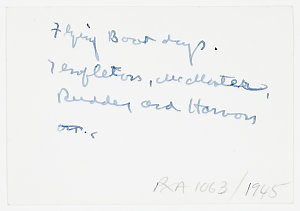 Flying Boat days.
Templetons, McMaster,
Rudder and Harvons
PXA 1063/1945